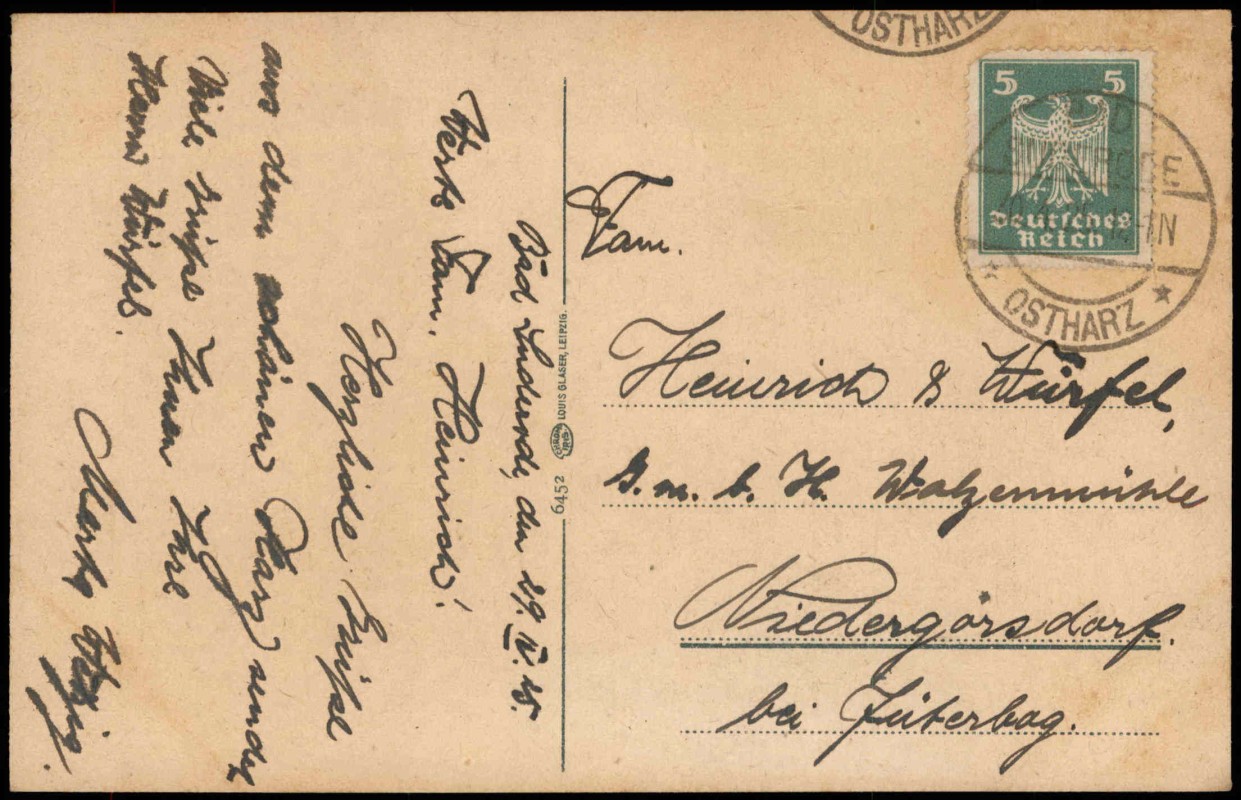 OSTHARZ
5 5
Deutsches
Reich
1-1N
OSTHARZ
Fam.
Heinrich & Würfel,
G. m. b. H. Walzenmühle
Niedergörsdorf.
bei Jüterbog.
6452
LOUIS GLASER, LEIPZIG.
Bad Suderode, den 29. V. 25.
Werte Fam. Heinrich!
Herzliche Grüße
aus dem schönen Harz sendet
Viele Grüße Ihnen Ihre
Herrn Würfel.